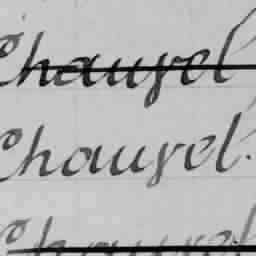 Chauvel
Chauvel.